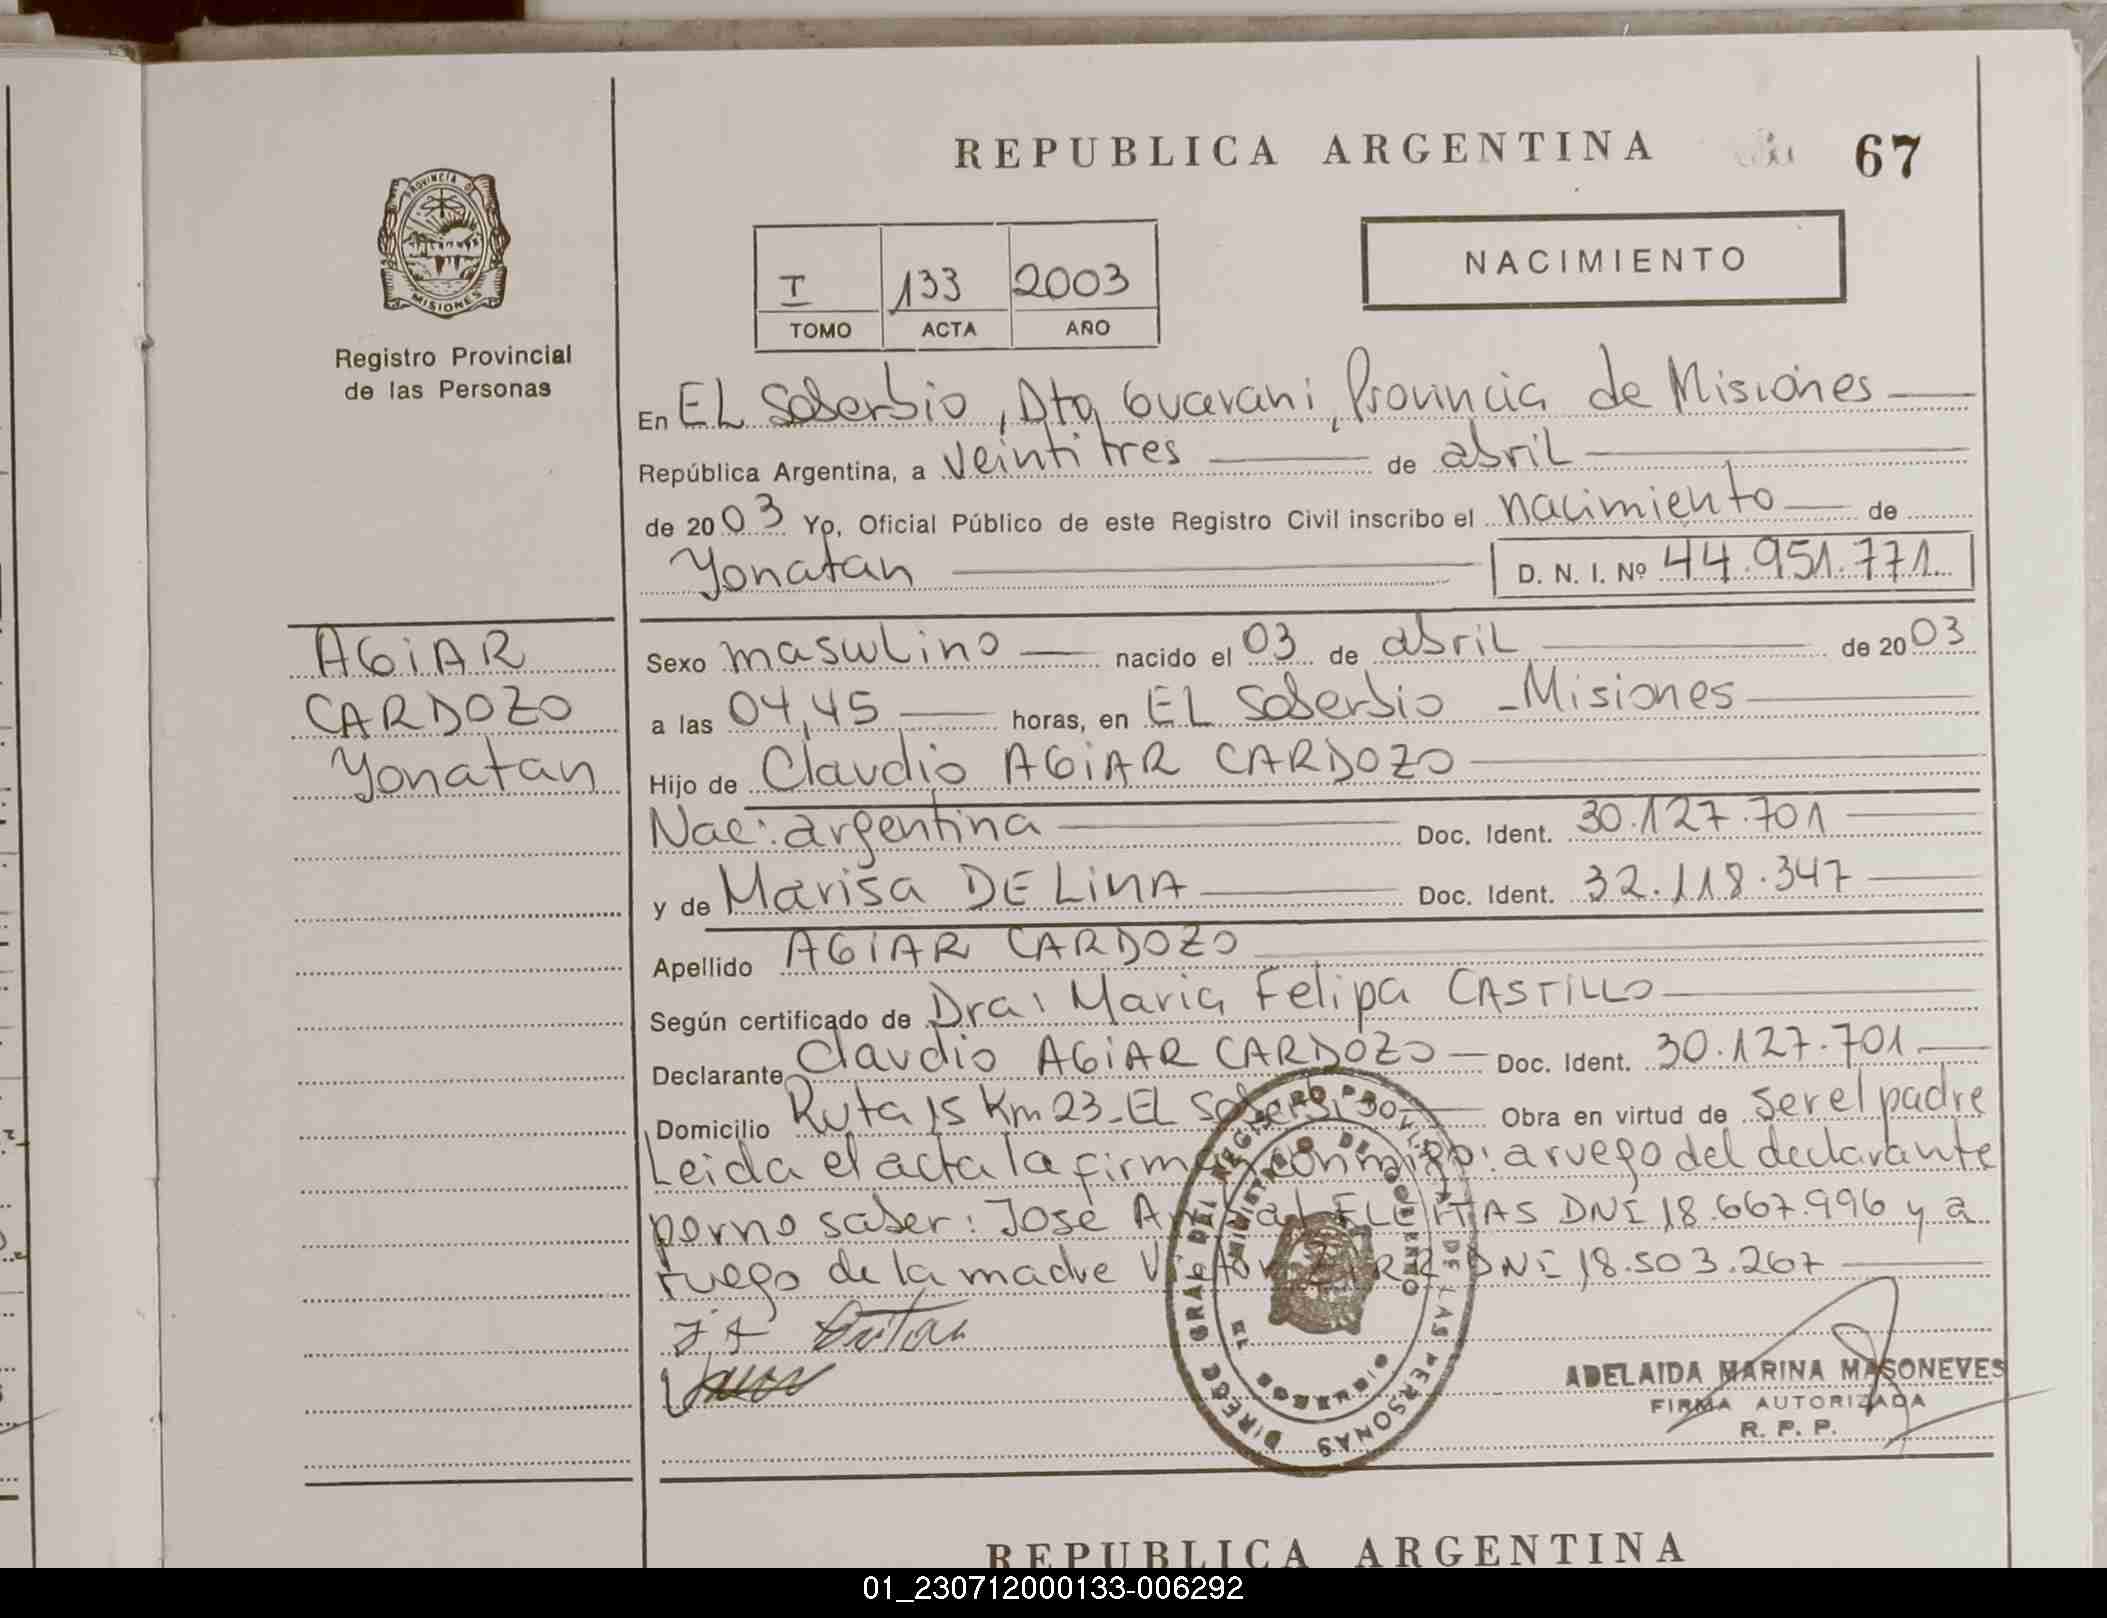 REPUBLICA ARGENTINA
67
PROVINCIA D
MISIONES
Registro Provincial
de las Personas
NACIMIENTO
I 133 2003
TOMO ACTA AÑO
En EL Soberbio, Dto Guarani, Provincia de Misiones
República Argentina, a veintitres de abril
de 2003 Yo, Oficial Público de este Registro Civil inscribo el nacimiento de
Yonatan D. N. I. Nº 44.951.771
AGiAR
CARDOZO
Yonatan
Sexo masculino nacido el 03 de abril de 2003
a las 04,45 horas, en EL Soberbio - Misiones
Hijo de Claudio AGiAR CARDOZO
Nac: argentina Doc. Ident. 30.127.701
y de Marisa DE LiMA Doc. Ident. 32.118.347
Apellido AGiAR CARDOZO
Según certificado de Dra: Maria Felipa CASTiLLO
Declarante Claudio AGiAR CARDOZO Doc. Ident. 30.127.701
Domicilio Ruta 15 Km 23-EL Soberbio Obra en virtud de ser el padre
Leida el acta la firman conmigo: a ruego del declarante
por no saber: José FLEITAS DNI 18.667.996 y a
ruego de la madre DNI 18.503.267
DIREC GRAL DEL REGISTRO PROVL DE LAS PERSONAS
MINISTERIO DE GOBIERNO
MISIONES
ADELAIDA MARINA MASONEVES
FIRMA AUTORIZADA
R. P. P.
REPUBLICA ARGENTINA
01_230712000133-006292